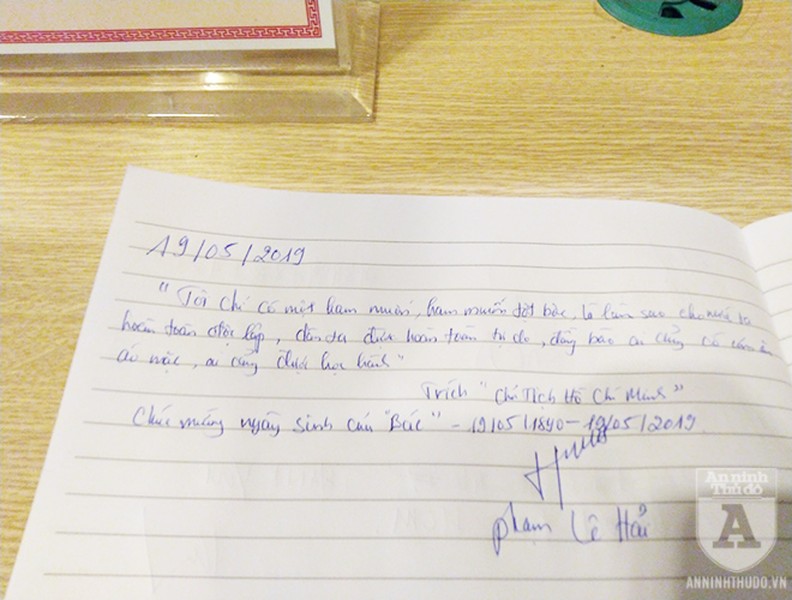 19/05/2019
"Tôi chỉ có một ham muốn, ham muốn tột bậc, là làm sao cho nước ta
hoàn toàn độc lập, dân ta được hoàn toàn tự do, đồng bào ai cũng có cơm ăn
áo mặc, ai cũng được học hành"
Trích "Chủ Tịch Hồ Chí Minh"
Chúc mừng ngày sinh của "Bác" - 19/05/1890 - 19/05/2019
Phạm Lê Hải
An ninh
Thủ đô
A
ANNINHTHUDO.VN